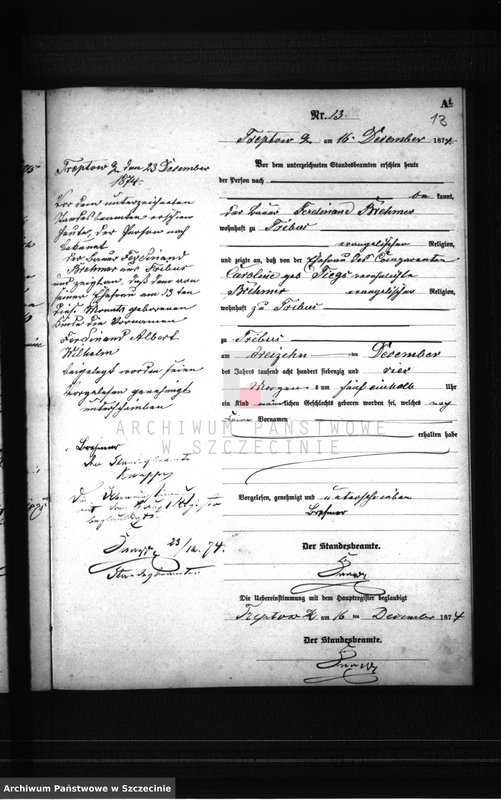 A1
13
Nr. 13.
Treptow R. am 16 ten Dezember 1874.
Vor dem unterzeichneten Standesbeamten erschien heute
der Person nach
be kannt,
der Bauer Ferdinand Brehmer
wohnhaft zu Tribus
evangelischer Religion,
und zeigte an, daß von der Ehefrau des Comparenten
Caroline geb Tiegs verehelichte
Brehmer evangelischer Religion,
wohnhaft zu Tribus
zu Tribus
am dreizehn ten Dezember
des Jahres tausend acht hundert siebenzig und vier
Morgens um fünf einhalb Uhr
ein Kind männlichen Geschlechts geboren worden sei, welches noch
keine Vornamen
erhalten habe
Vorgelesen, genehmigt und unterschrieben
Brehmer
Der Standesbeamte.
Die Uebereinstimmung mit dem Hauptregister beglaubigt
Treptow R am 16 ten Dezember 1874
Der Standesbeamte.
Treptow R den 23 Dezember
1874.
Vor dem unterzeichneten
Standesbeamten erschien
heute, der Person nach
bekannt
der Bauer Ferdinand
Brehmer aus Tribus
und zeigte an, daß dem von
seiner Ehefrau am 13 ten
dies. Monats geborenen
Kinde die Vornamen
Ferdinand Albert
Wilhelm
beigelegt worden seien
Vorgelesen genehmigt
unterschrieben
Brehmer
Der Standesbeamte
Die Uebereinstimmung
mit dem Hauptregister
beglaubigt.
23/12.74.
Standesbeamte.
ARCHIWUM PAŃSTWOWE
W SZCZECINIE
Archiwum Państwowe w Szczecinie